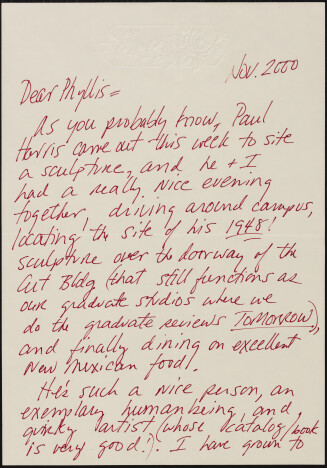 Nov. 2000
Dear Phyllis =
As you probably know, Paul
Harris came out this week to site
a sculpture, and he + I
had a really nice evening
together! driving around campus,
locating the site of his 1948!
sculpture over the doorway of the
Art Bldg (that still functions as
our graduate studios where we
do the graduate reviews TOMORROW),
and finally dining on excellent
New Mexican food.
He's such a nice person, an
exemplary human being, and
quirky artist (whose catalog/book
is very good!). I have grown to